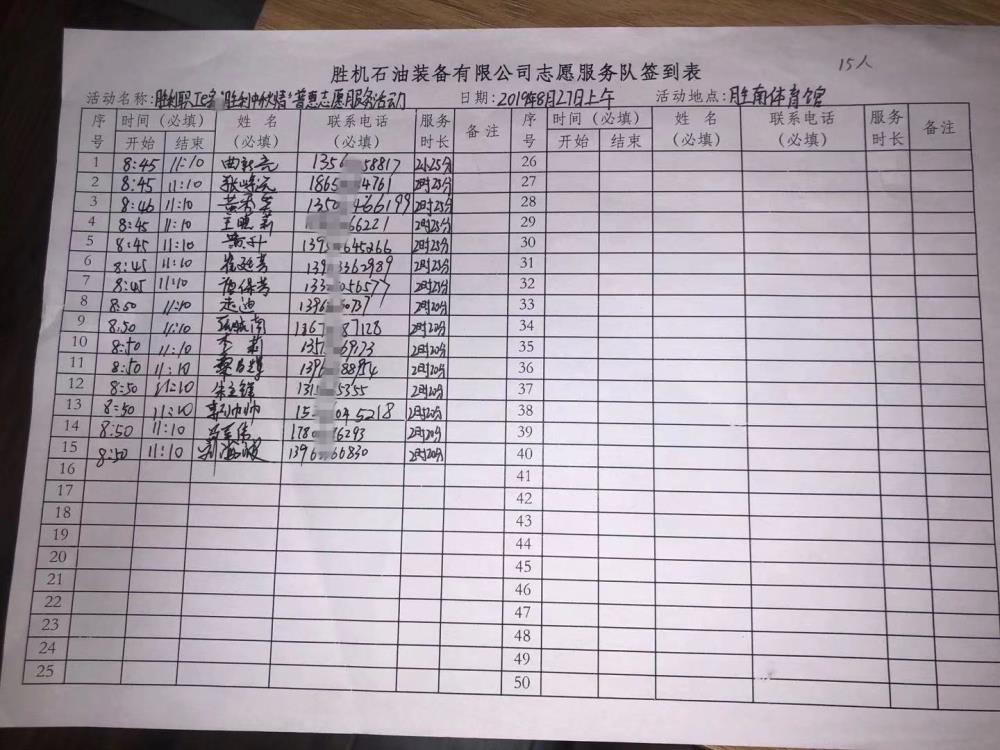 胜机石油装备有限公司志愿服务队签到表 15人
活动名称:胜利职工e家"胜利中秋情"普惠志愿服务活动 日期:2019年8月27日上午 活动地点:胜南体育馆
序号 时间(必填) 姓名(必填) 联系电话(必填) 服务时长 备注 序号 时间(必填) 姓名(必填) 联系电话(必填) 服务时长 备注
开始 结束 开始 结束
1 8:45 11:10 1356 58817 2时25分 26
2 8:45 11:10 1865 4761 2时25分 27
3 8:46 11:10 1350 466199 2时25分 28
4 8:45 11:10 王晓莉 66221 2时25分 29
5 8:45 11:10 黄升 139 645266 2时25分 30
6 8:45 11:10 崔延芳 139 3362989 2时25分 31
7 8:45 11:10 133 056577 2时25分 32
8 8:50 11:10 走迪 1396 50737 2时20分 33
9 8:50 11:10 1367 87128 2时20分 34
10 8:50 11:10 李莉 1357 69173 2时20分 35
11 8:50 11:10 1396 88954 2时20分 36
12 8:50 11:10 朱立维 131 5355 2时20分 37
13 8:50 11:10 郭帅帅 15 04 5218 2时20分 38
14 8:50 11:10 1780 76293 2时20分 39
15 8:50 11:10 刘海波 1396 66830 2时20分 40
16 41
17 42
18 43
19 44
20 45
21 46
22 47
23 48
24 49
25 50